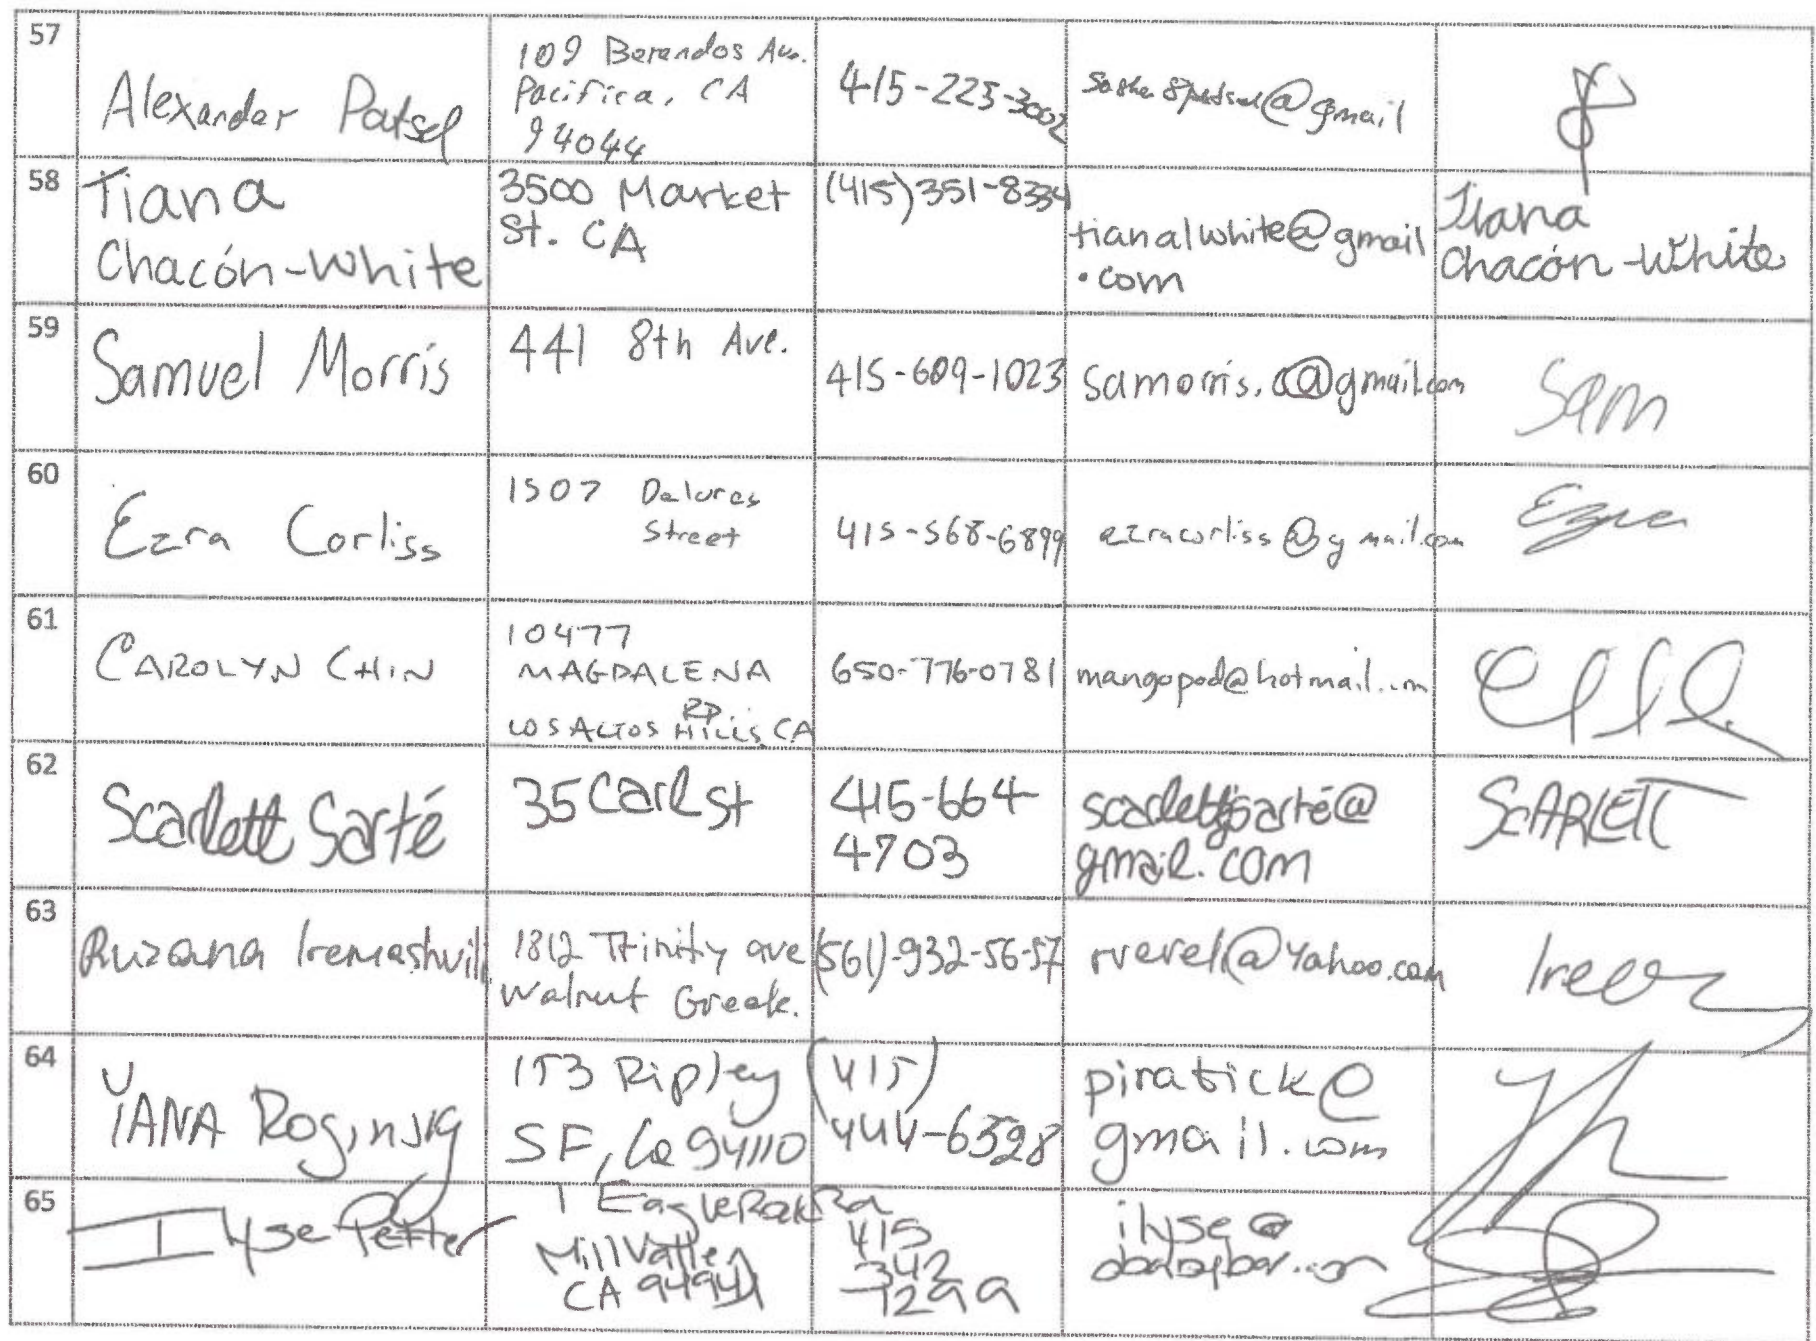 57
Alexander Patsel
109 Berendos Ave.
Pacifica, CA
94044
415-225-3002
@gmail
58
Tiana
Chacón-White
3500 Market
St. CA
(415)351-8334
tianalwhite@gmail
.com
Tiana
Chacón-White
59
Samuel Morris
441 8th Ave.
415-609-1023
samorris.c@gmail.com
Sam
60
Ezra Corliss
1507 Dolores
Street
415-568-6899
ezracorliss@gmail.com
Ezra
61
CAROLYN CHIN
10477
MAGDALENA
RD
LOS ALTOS HILLS, CA
650-776-0781
mangopod@hotmail.com
62
Scarlett Sarté
35 Carl St
415-664
4703
scarlettgsarté@
gmail.com
SCARLETT
63
Ruzana Iremashvili
1812 Trinity ave
Walnut Greek.
(561)-932-56-57
rverel@yahoo.com
64
YANA Roginsky
153 Ripley
SF, Ca 94110
(415)
444-6528
piratick@
gmail.com
65
Ilyse Petter
1 Eagle Rock Rd
Mill Valley
CA 94941
415
342
7299
ilyse@